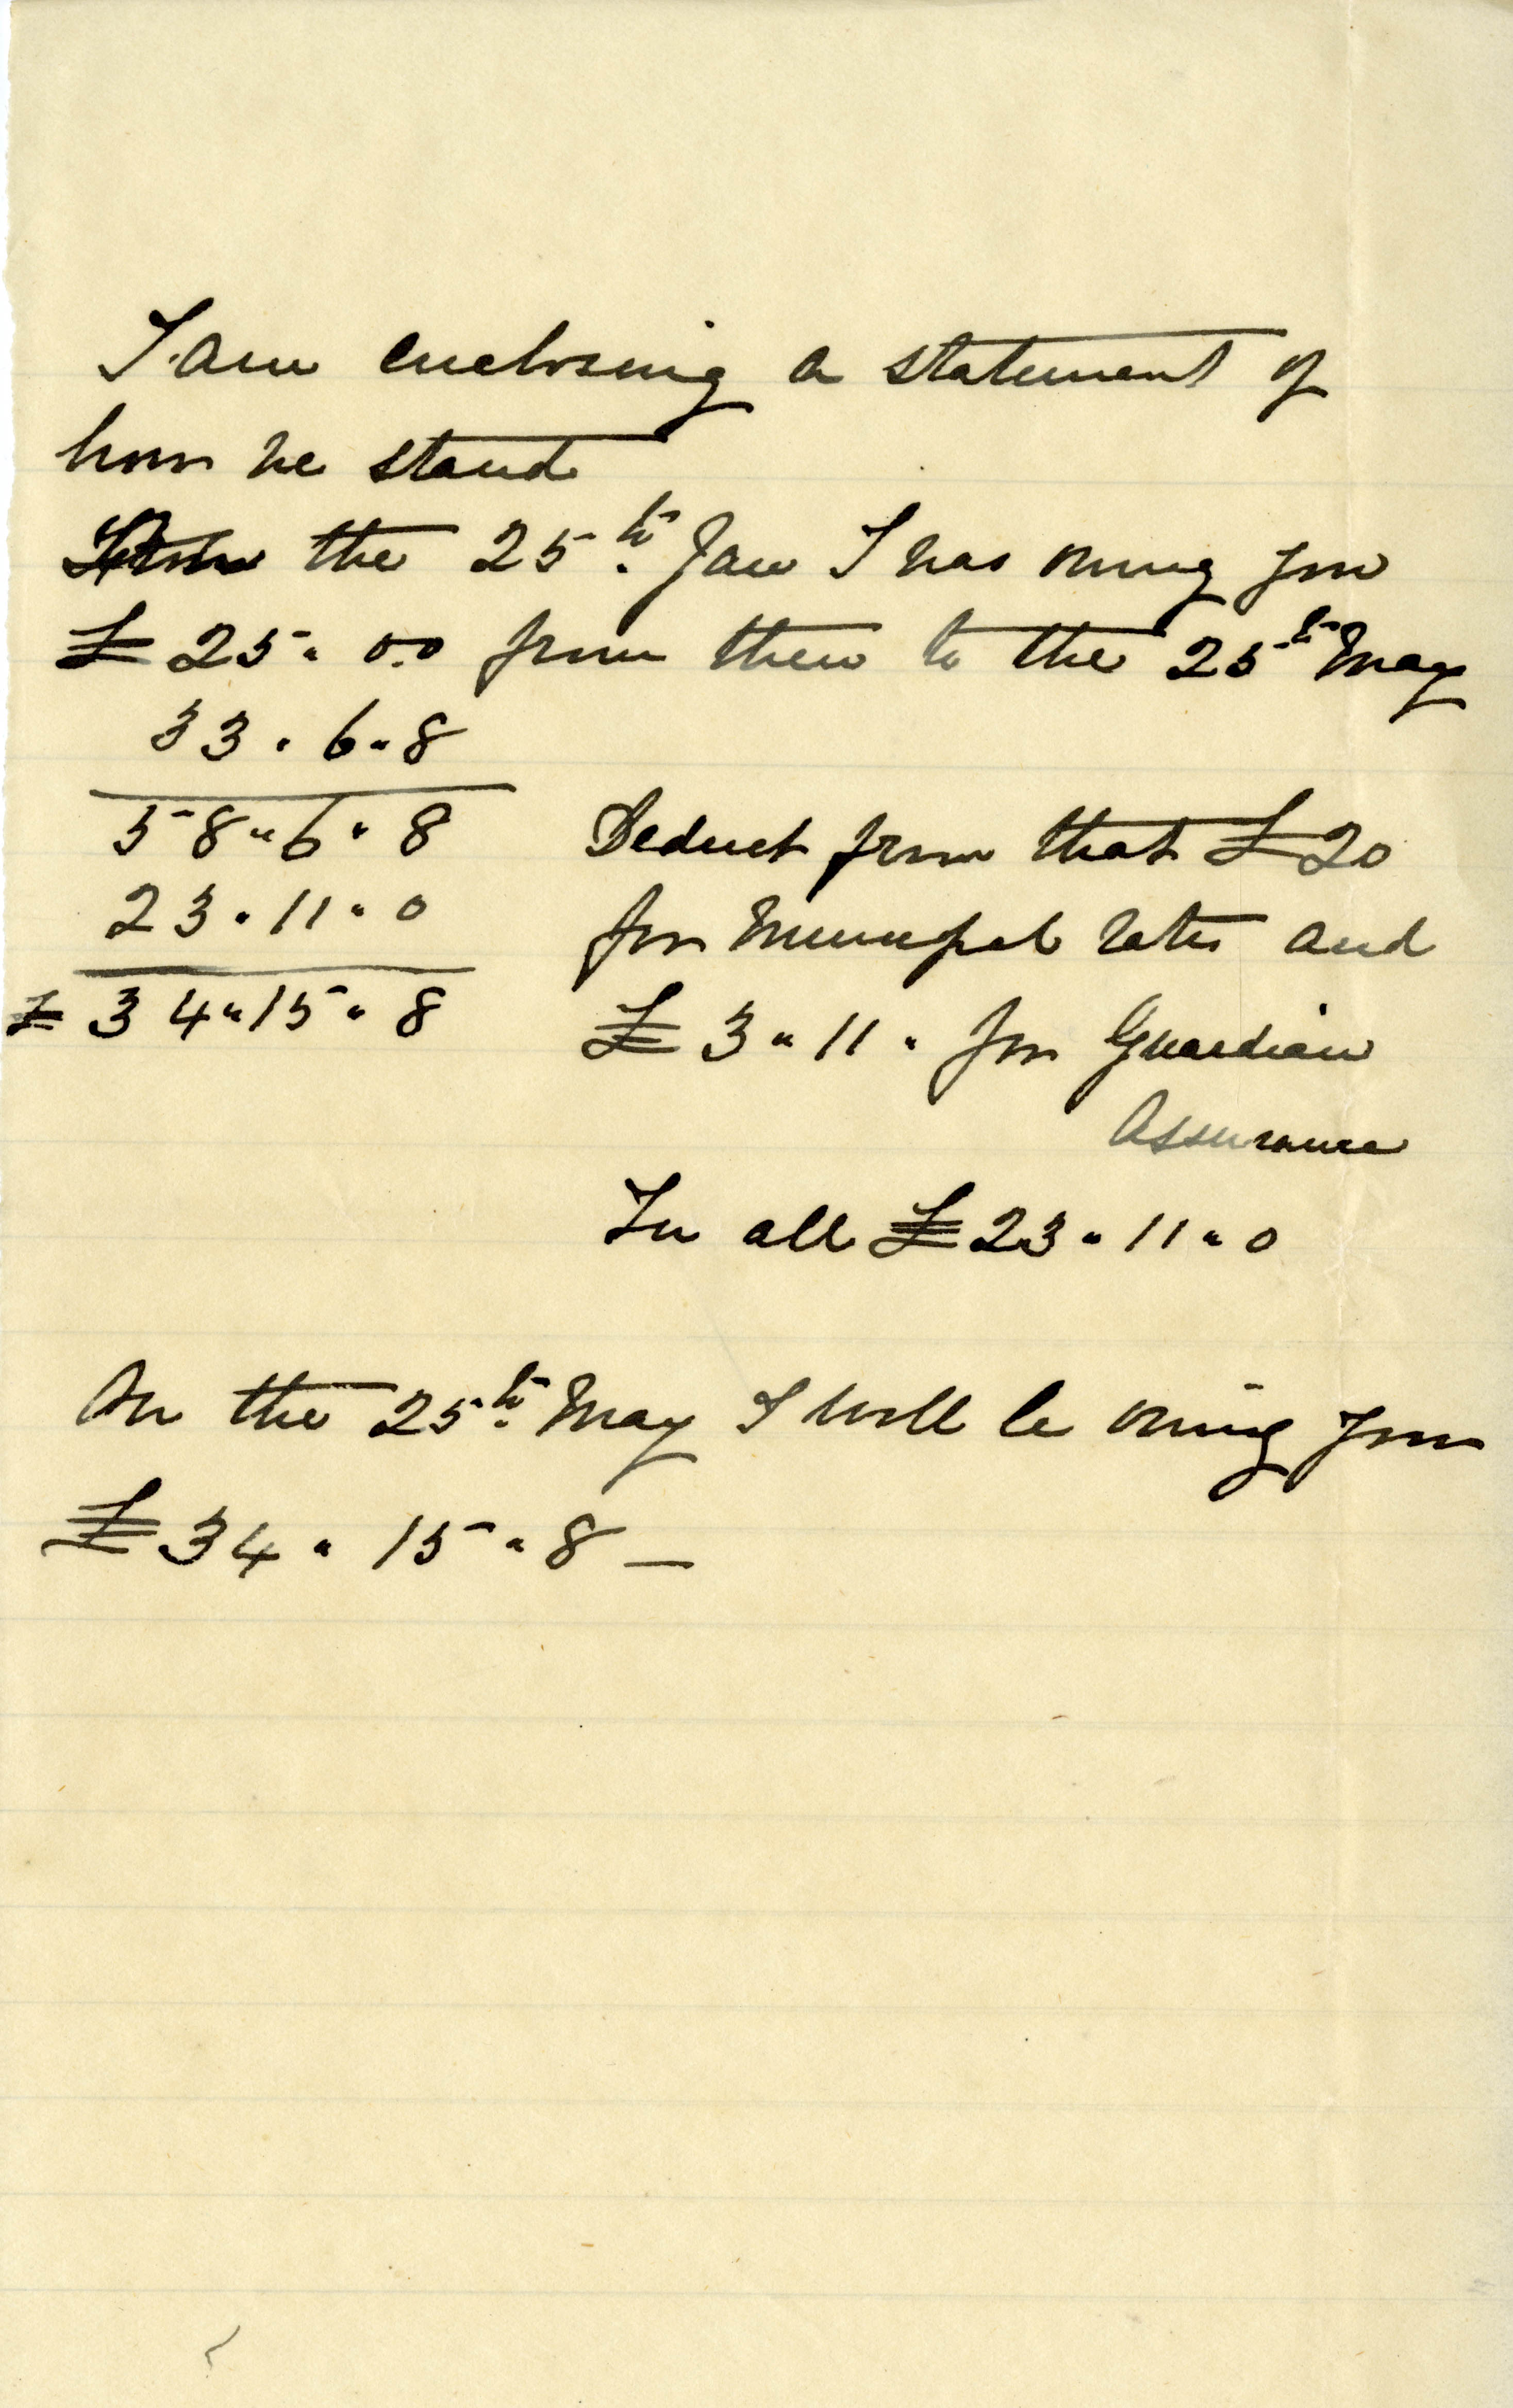 I am enclosing a statement of
how we stand
From the 25th Jan I was owing you
£25 " 0.0 from then to the 25th May
33 " 6 " 8
58 " 6 " 8 Deduct from that £20
23 " 11 " 0 for Municipal rates and
£34 " 15 " 8 £3 " 11 " for Guardian
Assurance
In all £23 " 11 " 0
On the 25th May I will be owing you
£34 " 15 " 8 —